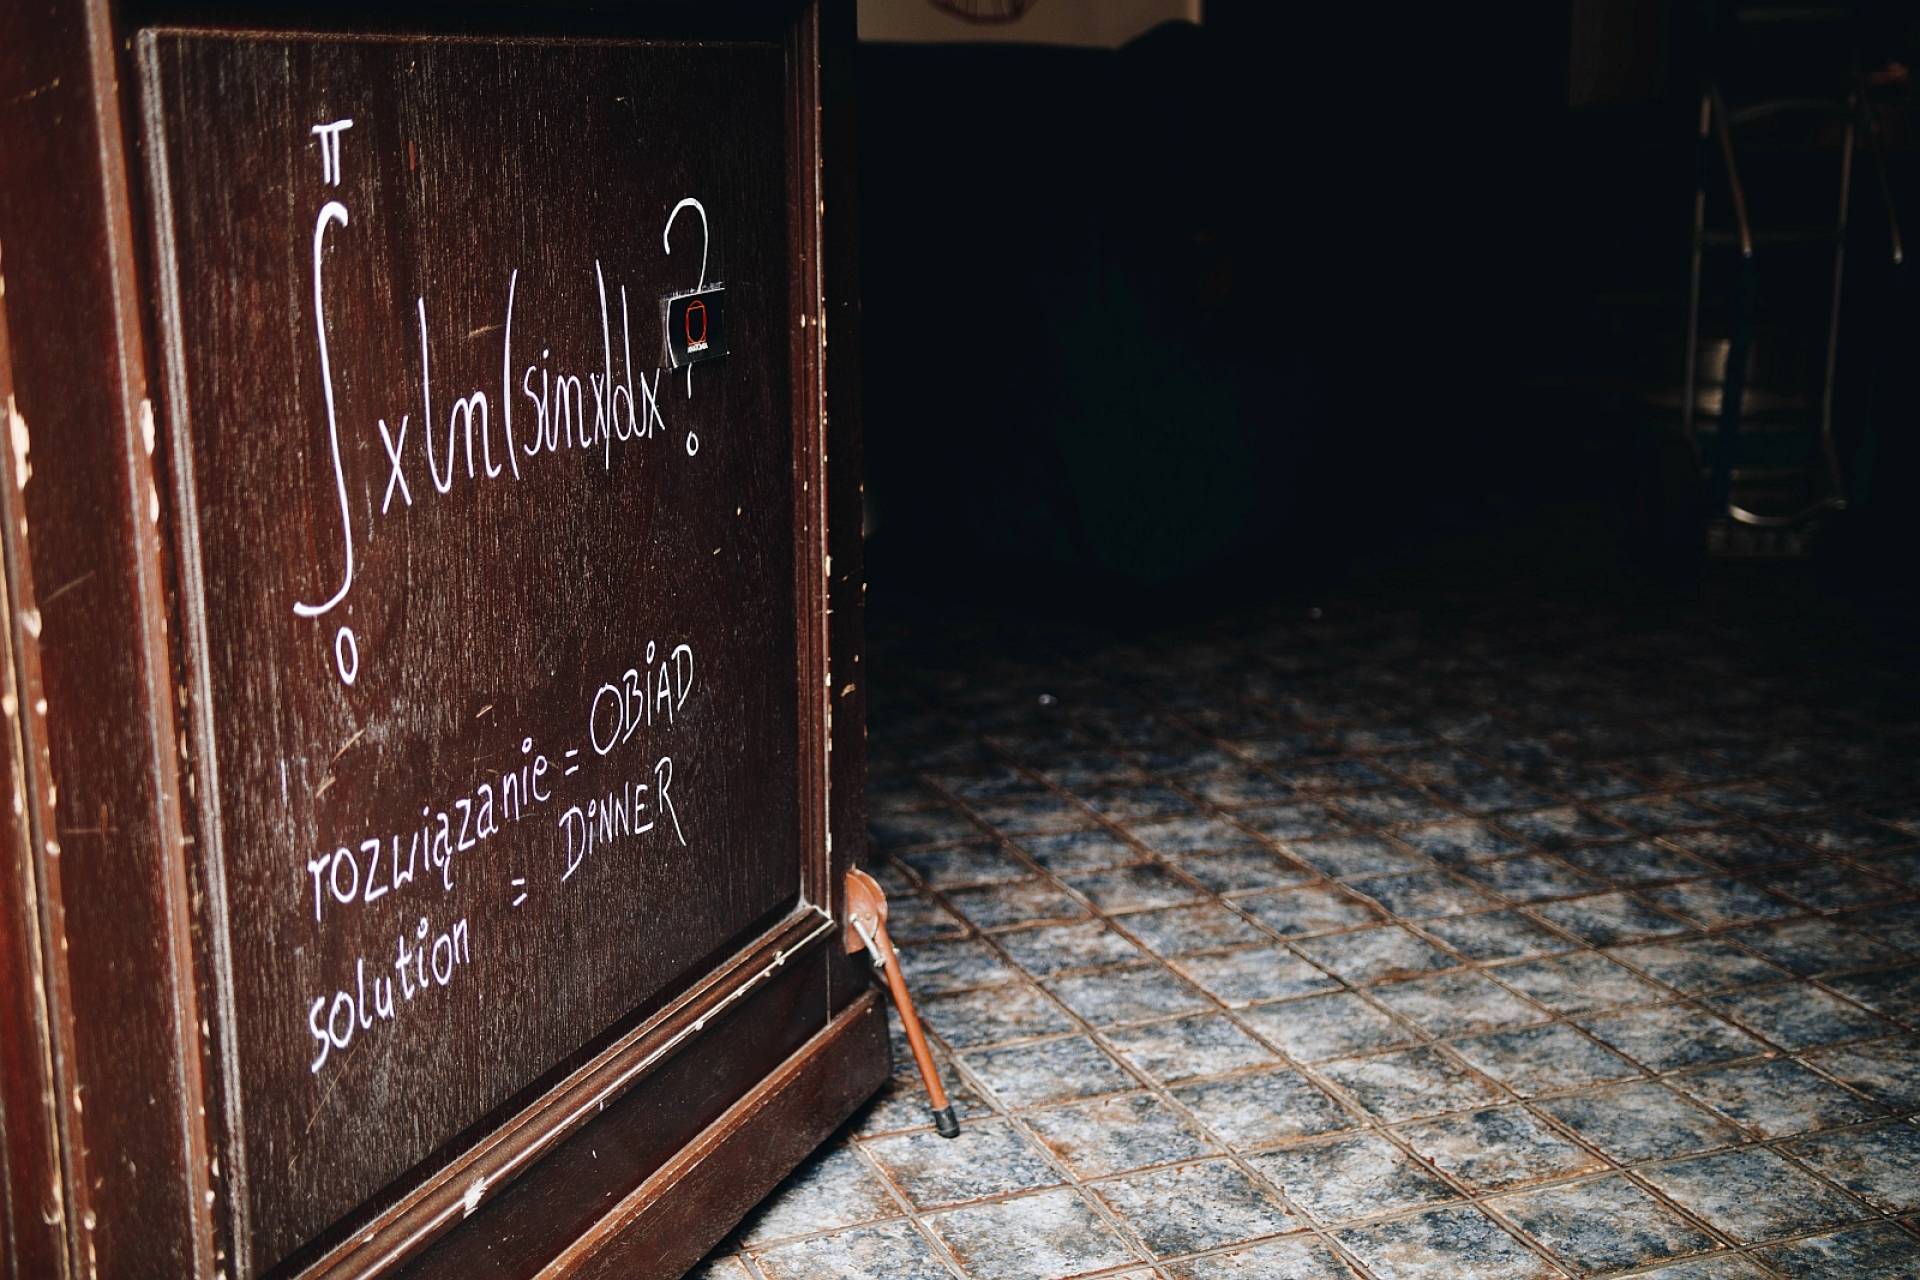 π
∫ x ln(sinx)dx ?
0
rozwiązanie = OBiAD
solution = DiNNER